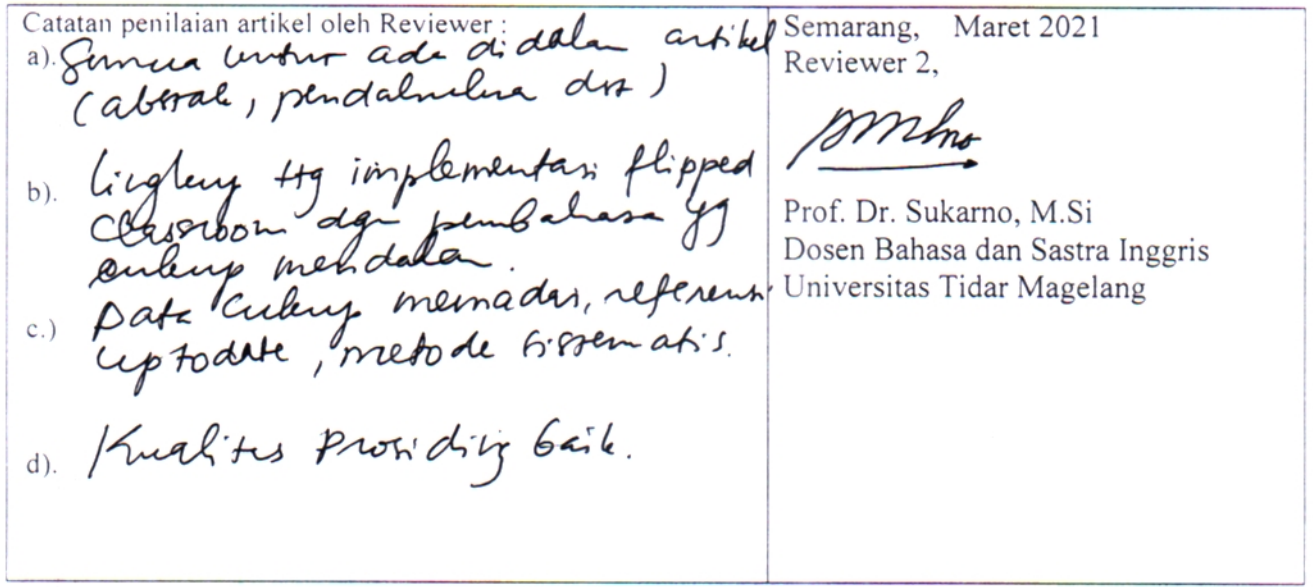 Catatan penilaian artikel oleh Reviewer :
a). Semua unsur ada didalam artikel
(abstrak, pendahuluan dst)
b). lingkup ttg implementasi flipped
classroom dgn pembahasan yg
cukup mendalam.
c.) Data cukup memadai, referensi
uptodate, metode sistematis.
d). Kualitas Prosiding baik.
Semarang, Maret 2021
Reviewer 2,
Prof. Dr. Sukarno, M.Si
Dosen Bahasa dan Sastra Inggris
Universitas Tidar Magelang